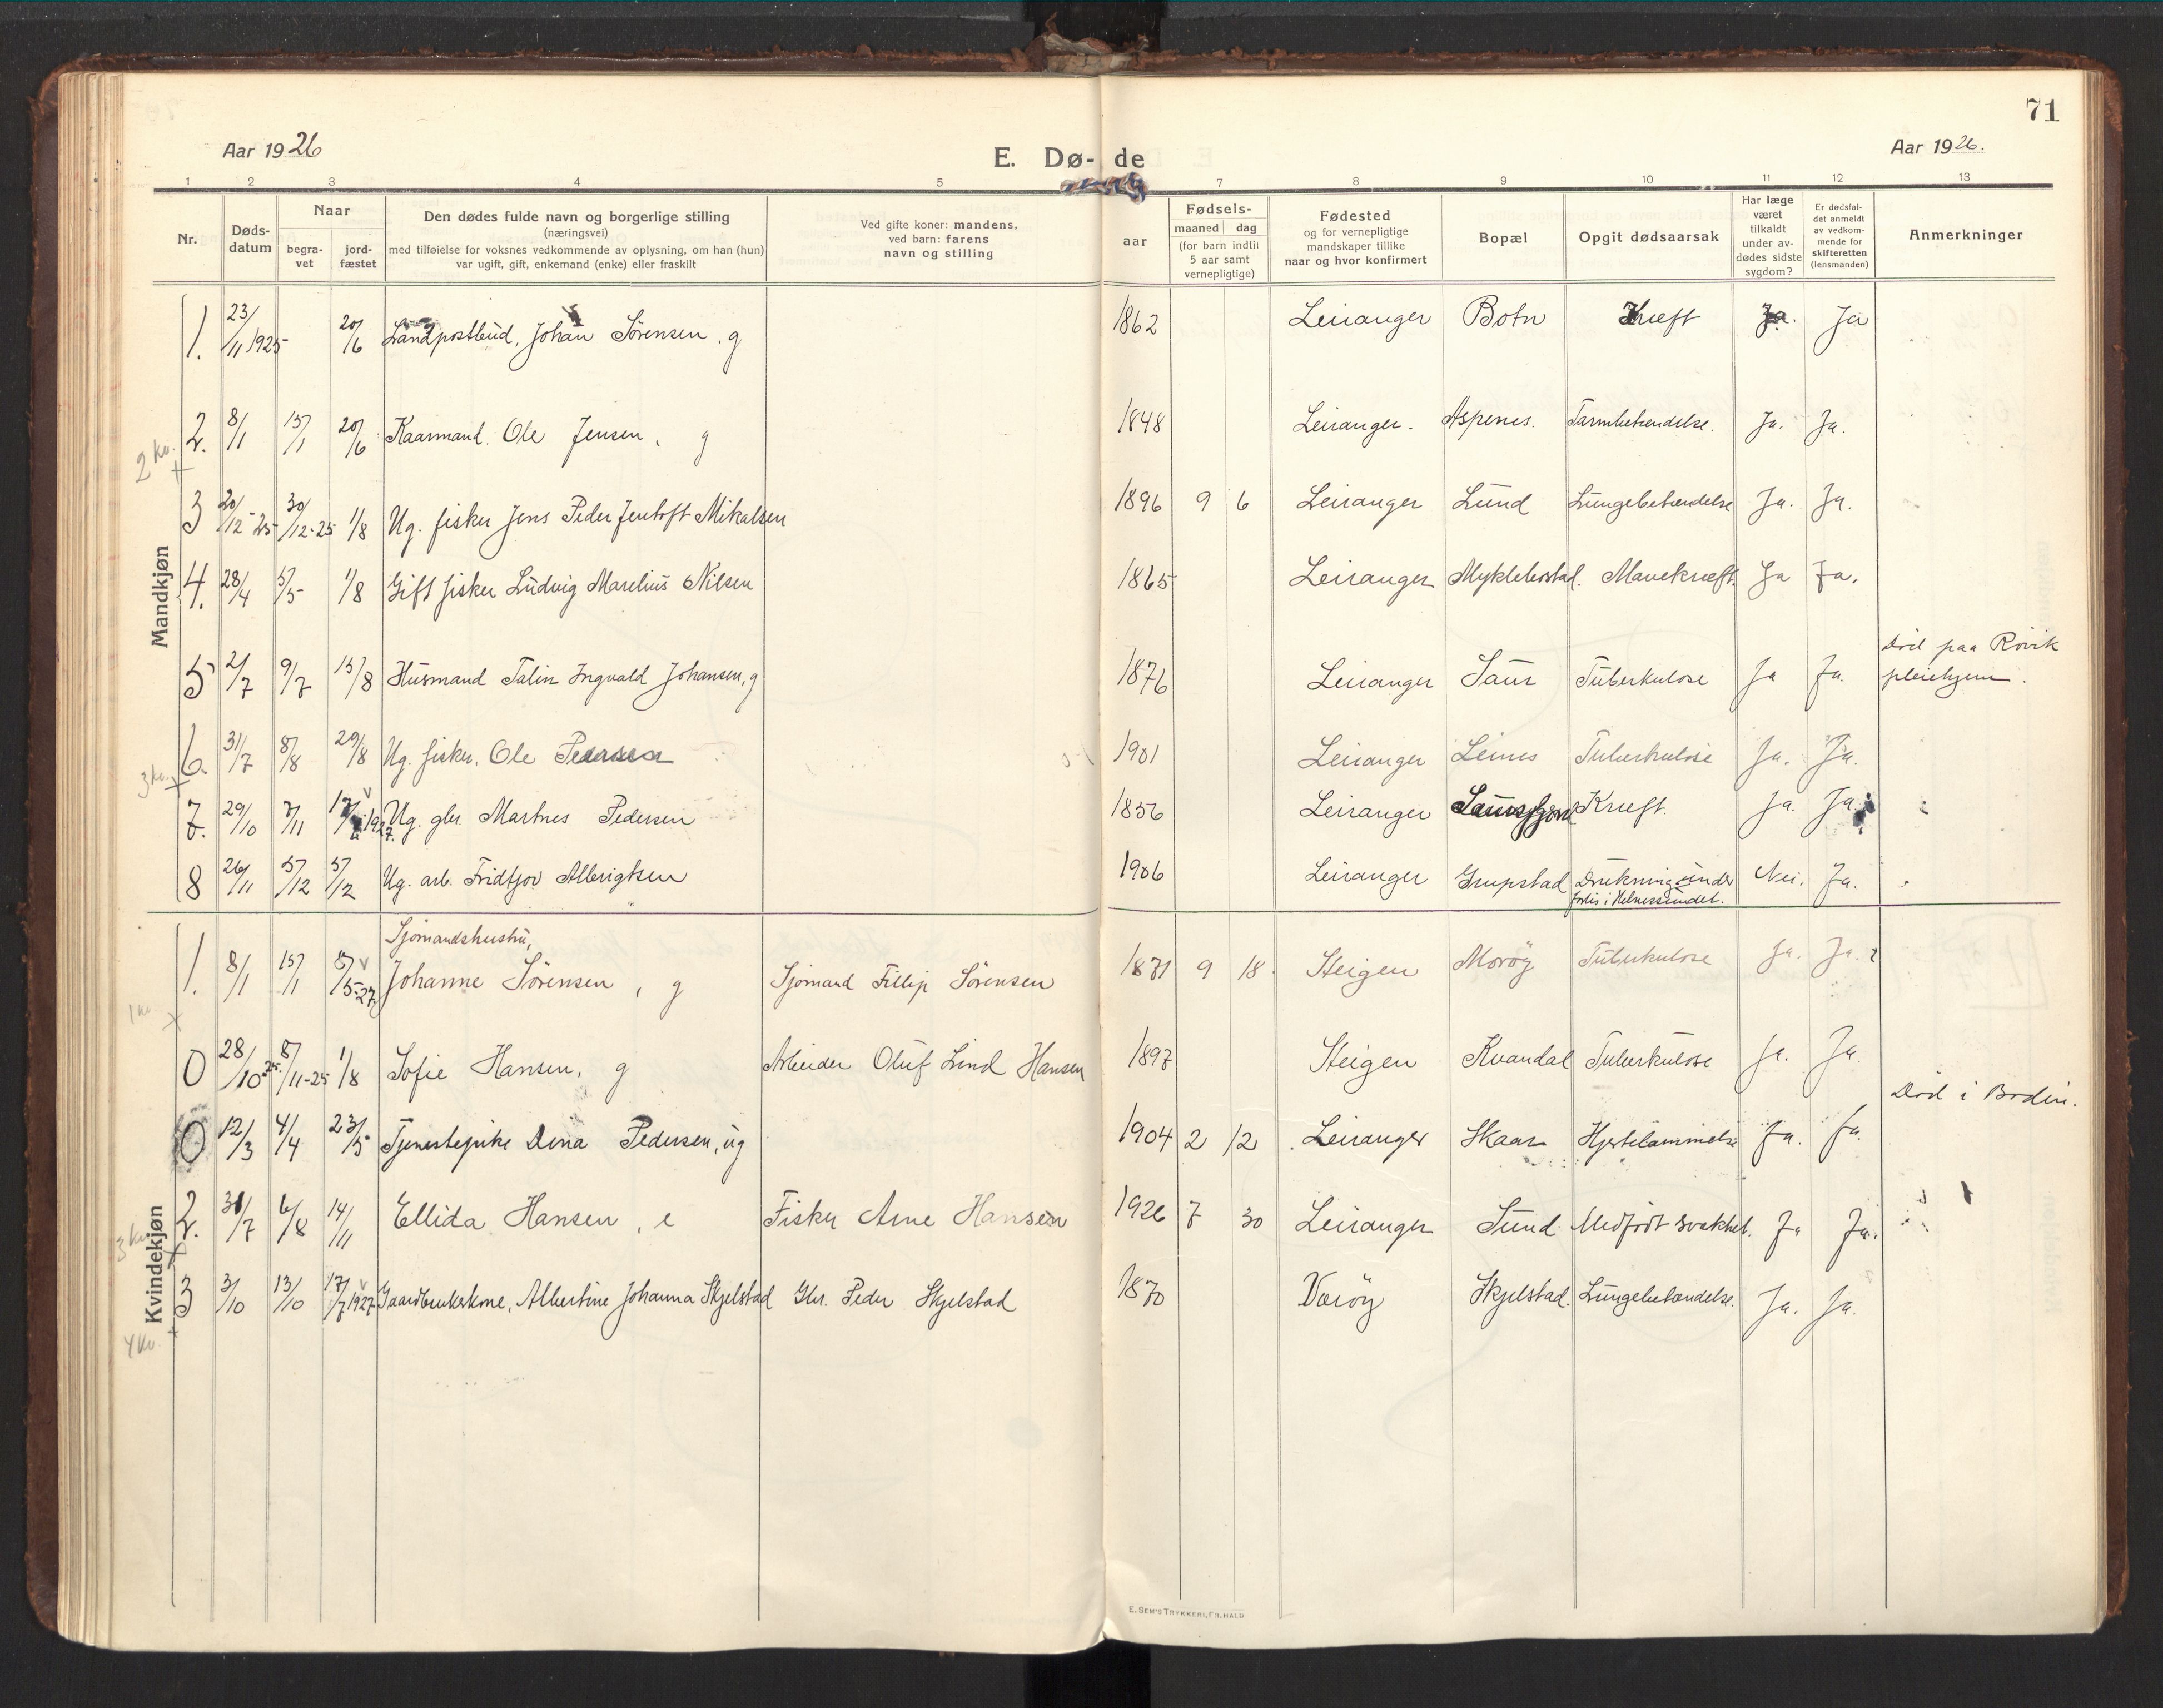 71
Aar 1926
E. Dø- de
Aar 1926.
1 2 3 4 5 7 8 9 10 11 12 13
Nr.
Døds-datum
Naar
begra-vet
jord-fæstet
Den dødes fulde navn og borgerlige stilling
(næringsvei)
med tilføielse for voksnes vedkommende av oplysning, om han (hun)
var ugift, gift, enkemand (enke) eller fraskilt
Ved gifte koner: mandens,
ved barn: farens
navn og stilling
Fødsels-
aar
maaned dag
(for barn indtil
5 aar samt
vernepligtige)
Fødested
og for vernepligtige
mandskaper tillike
naar og hvor konfirmert
Bopæl
Opgit dødsaarsak
Har læge
været
tilkaldt
under av-
dødes sidste
sygdom?
Er dødsfal-
det anmeldt
av vedkom-
mende for
skifteretten
(lensmanden)
Anmerkninger
Mandkjøn
1. 23/11 1925 20/6 Landpostbud, Johan Sörensen. g 1862 Leiranger Botn Kræft Ja. Ja
2. 8/1 15/1 20/6 Kaarmand. Ole Jensen, g 1848 Leiranger. Aspenes. Tarmbetændelse. Ja. Ja.
2 kv.
3 20/12-25 30/12-25 1/8 Ug. fisker Jens Peder Jentoft Mikalsen 1896 9 6 Leiranger Lund Lungebetændelse Ja. Ja.
4. 28/4 5/5 1/8 Gift fisker Ludvig Marelius Nilsen 1865 Leiranger Myklebostad. Mavekræft. Ja Ja.
5 2/7 9/7 15/8 Husmand Talin Ingvald Johansen, g 1876 Leiranger Saur Tuberkulose Ja Ja. Död paa Rövik
pleiehjem.
6. 31/7 8/8 29/8 Ug. fisker, Ole Pedersen 1901 Leiranger Leines Tuberkulose Ja. Ja.
3 kv.
7. 29/10 7/11 1927. Ug. gbr. Martnes Pedersen 1856 Leiranger Saursfjord Kræft. Ja. Ja
8 26/11 5/12 5/12 Ug. arb. Fridtjov Albrigtsen 1906 Leiranger Grupstad Drukning under
forlis i Helnessundet. Nei. Ja.
Kvindekjøn
Sjømandshustru,
1. 8/1 15/1 8/5-27 Johanne Sörensen, g Sjömand Fillip Sörensen 1871 9 18. Steigen Moröy Tuberkulose Ja. Ja.
1 kv.
0 28/10-25. 8/11-25 1/8 Sofie Hansen, g Arbeider Oluf Lind Hansen 1897 Steigen Kvandal Tuberkulose Ja. Ja.
Död i Bodin.
0 12/3 4/4 23/5 Tjenestepike Dina Pedersen, ug 1904 2 12 Leiranger Skaar Hjertelammelse Ja. Ja.
2. 31/7 6/8 14/11 Ellida Hansen, e Fisker Arne Hansen 1926 7 30 Leiranger Sund Medfödt svakhet. Ja Ja.
3 kv.
3 3/10 13/10 17/7 1927 Gaardbrukerkone, Albertine Johanna Skjelstad Gbr. Peder Skjelstad 1870 Væröy Skjelstad. Lungebetændelse. Ja. Ja.
4 kv.
E. SEM'S TRYKKERI, FR.HALD